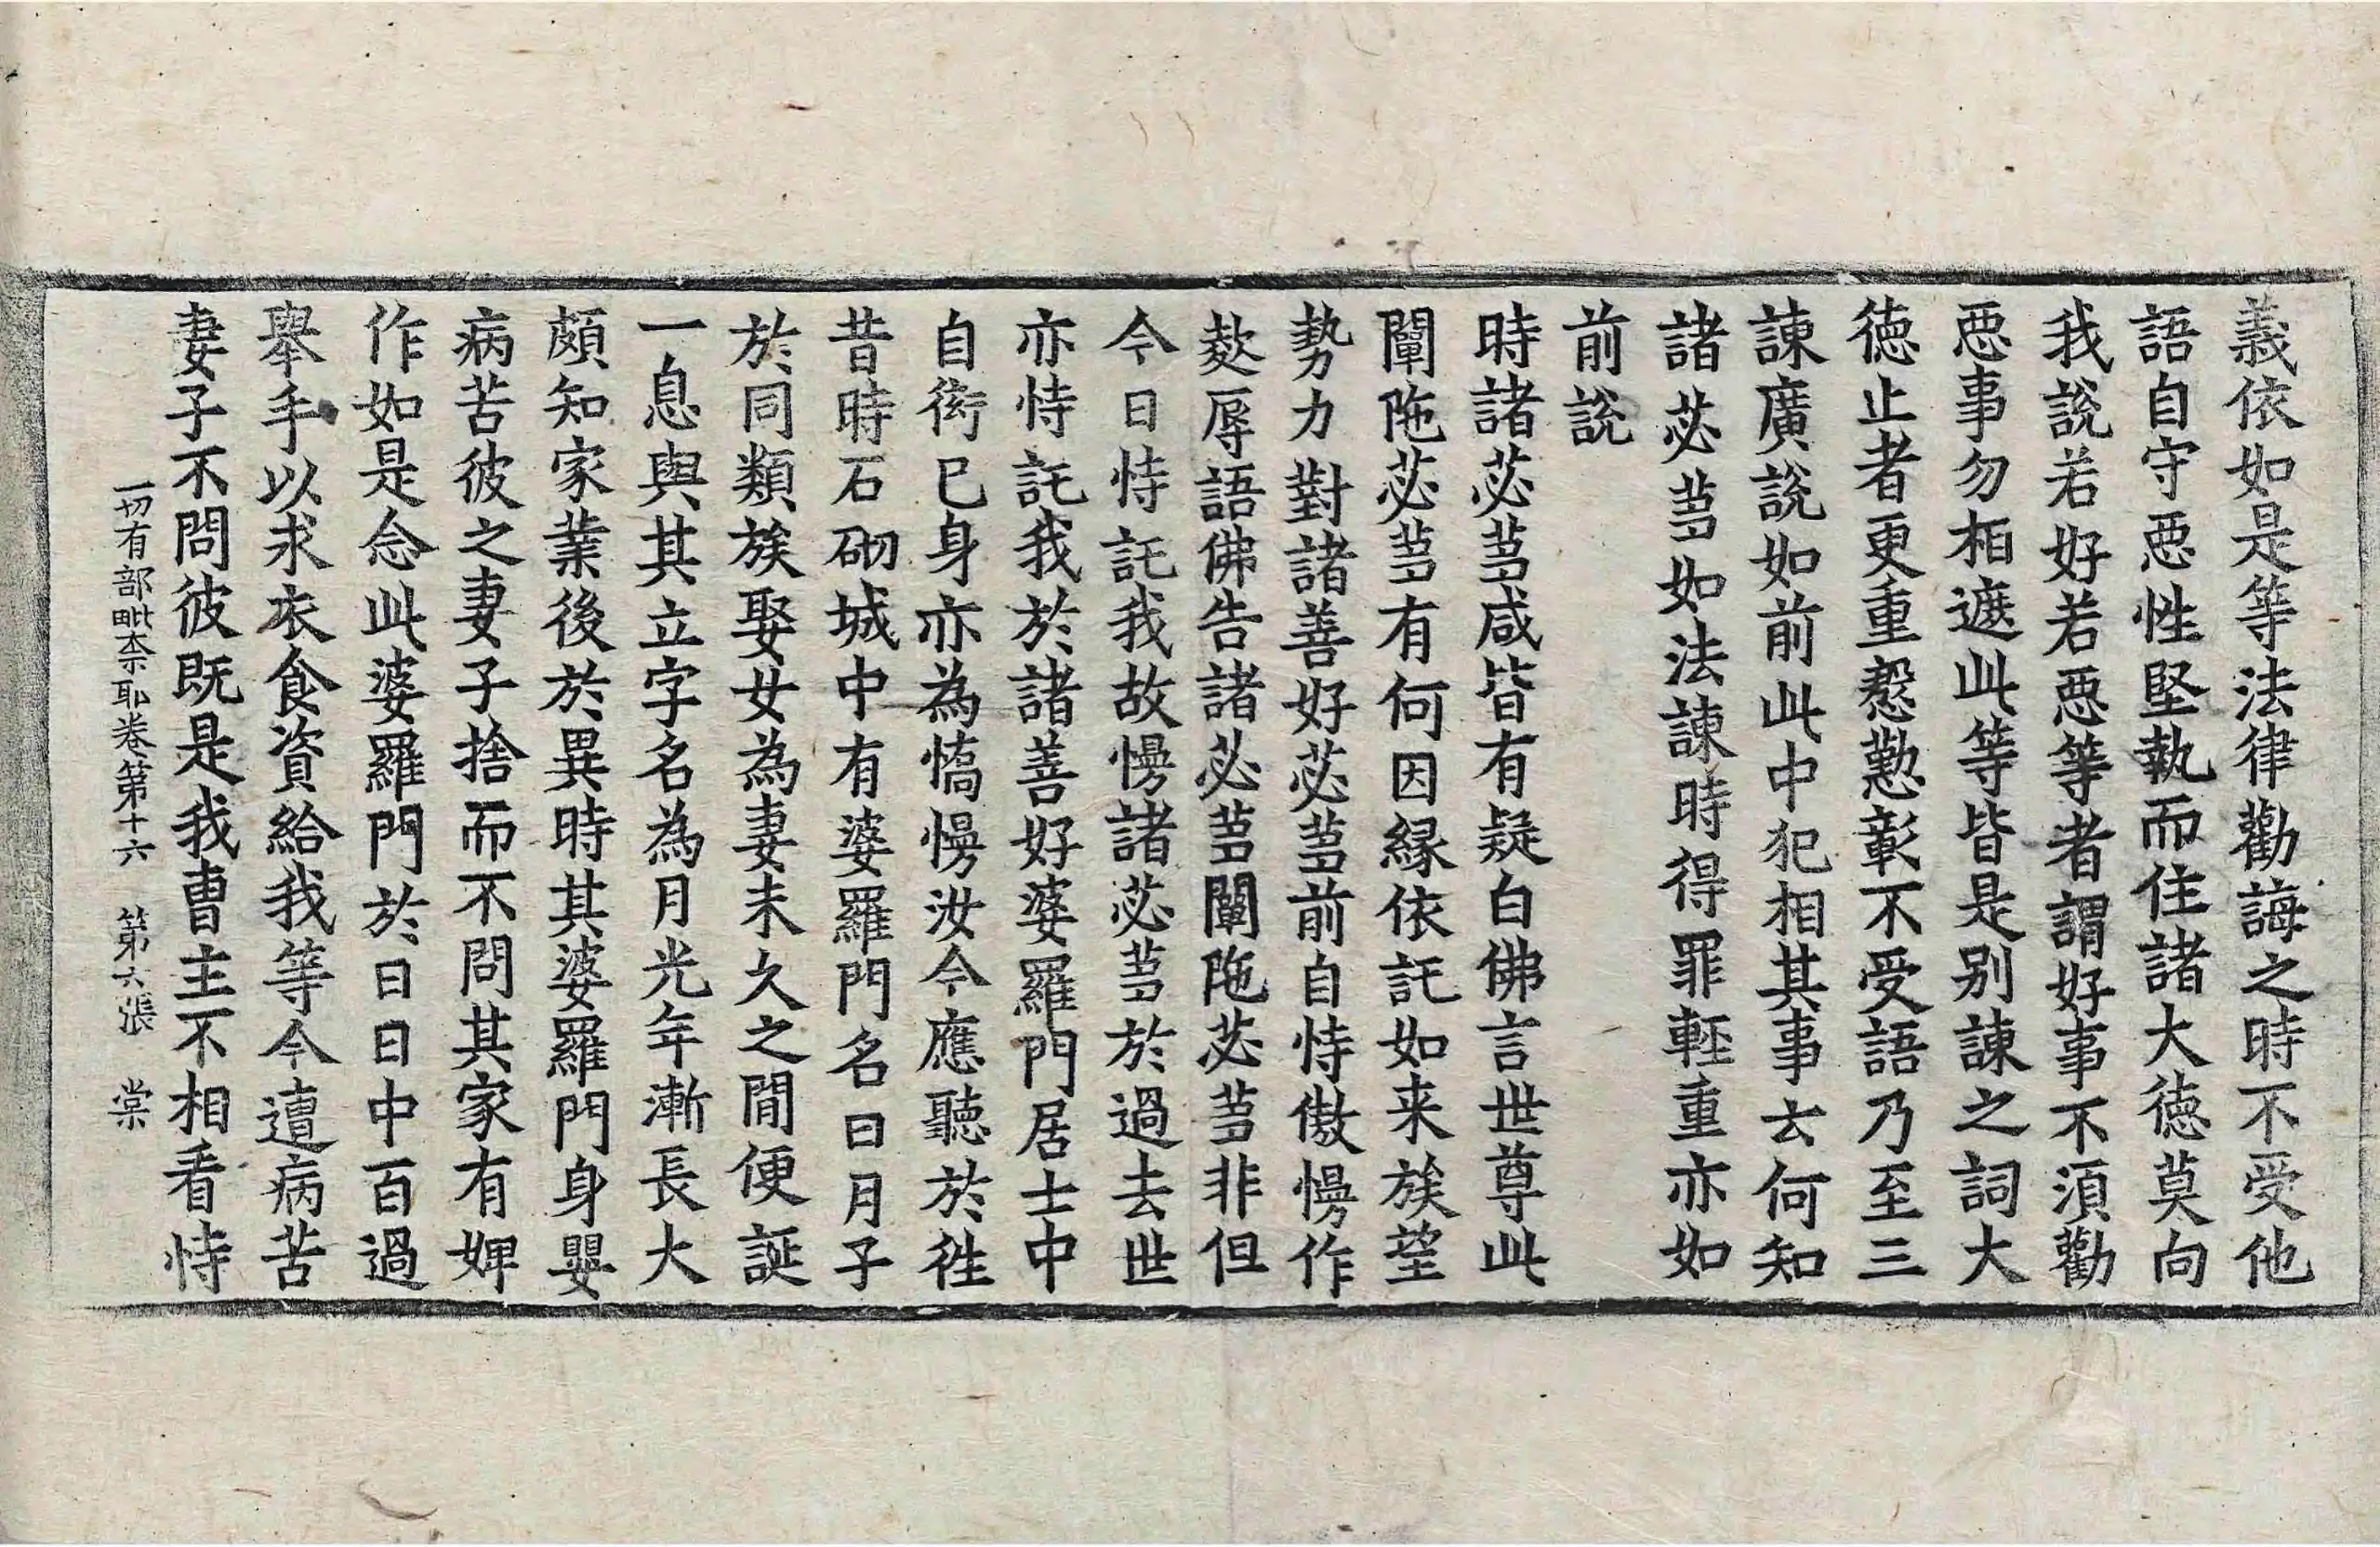 義依如是等法律勸誨之時不受他
語自守惡性堅執而住諸大德莫向
我說若好若惡等者謂好事不湏勸
惡事勿相遮此等皆是别諫之詞大
德止者更重慇懃彰不受語乃至三
諫廣說如前此中犯相其事云何知
諸苾芻如法諫時得罪輕重亦如
前說
時諸苾芻咸皆有疑白佛言世尊此
闡陁苾芻有何因緣依託如来族望
勢力對諸善好苾芻前自恃傲慢作
欻辱語佛告諸苾芻闡陁苾芻非但
今日恃託我故慢諸苾芻於過去世
亦恃託我於諸善好婆羅門居士中
自衒己身亦為憍慢汝今應聽於徃
昔時石砌城中有婆羅門名曰月子
於同類族娶女為妻未久之間便誕
一息與其立字名為月光年漸長大
頗知家業後於異時其婆羅門身嬰
病苦彼之妻子捨而不問其家有婢
作如是念此婆羅門於日日中百過
舉手以求衣食資給我等今遭病苦
妻子不問彼既是我曹主不相看恃
一切有部毗柰耶卷第十六 第六張 棠